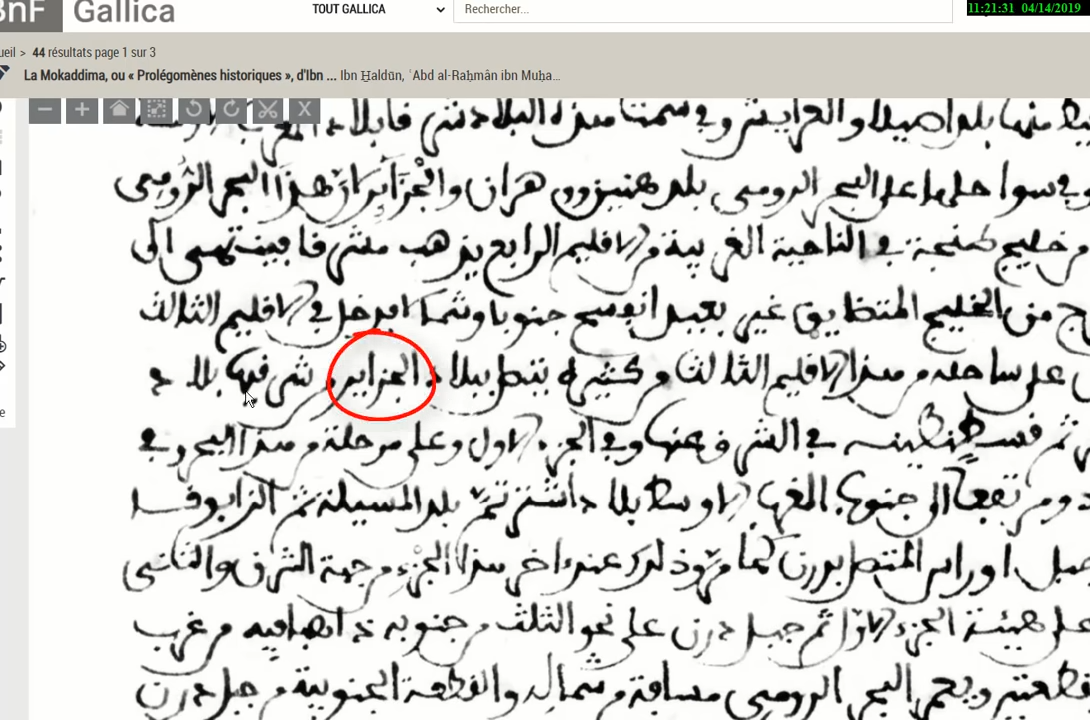 BnF Gallica TOUT GALLICA Rechercher... 11:21:31 04/14/2019
ueil > 44 résultats page 1 sur 3
La Mokaddima, ou « Prolégomènes historiques », d'Ibn ... Ibn H̱aldūn, ʿAbd al-Raḥmân ibn Muḥa...
منها بلد اصيلا والعرايش وفي سمت هذه البلاد شرفا بلاد
في سواحلها على البحر الرومي بلد هنين ووهران والجزائر لان هذا البحر الرومي
من خليج طنجة في الناحية الغربية من الاقليم الرابع يذهب مشرفا فينتهي الى
من الخليج المتضايق غير بعيد انفسح جنوبا وشمالا فدخل في الاقليم الثالث
على ساحله من هذا الاقليم الثالث وكثير يتصل ببلاد الجزاير من شرفيها بلاد
ثم قسطنطينة في الشرق عنها وفي الجزء الاول وعلى مرحلة من هذا البحر وفي
ومرتفعا الى جنوب المغرب الاوسط بلد اشير ثم بلد المسيلة ثم الزاب
جبل اوراس المتصل بدرن كما مر وذلك عند اخر هذا الجزء من جهة الشرق والثاني
على هيئة الجزء الاول ثم جبل درن على نحو الثلث من جنوبه ذاهبا فيه من غرب
ويغمر البحر الرومي مسافة من شماله والقطعة الجنوبية من جبل درن